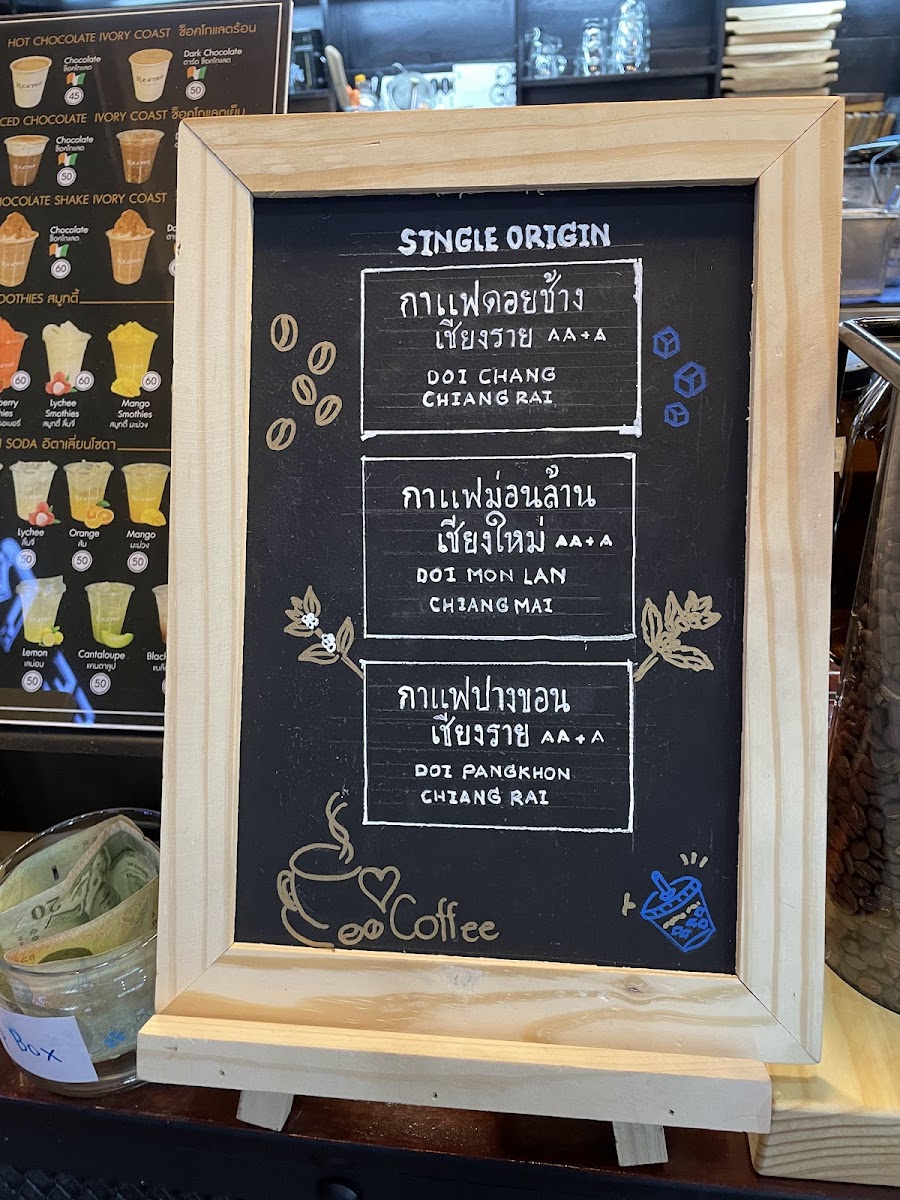 HOT CHOCOLATE IVORY COAST ช็อคโกแลตร้อน
Chocolate
ช็อคโกแลต
45
Dark Chocolate
ดาร์ค ช็อคโกแลต
50
CED CHOCOLATE IVORY COAST ช็อคโกแลตเย็น
Chocolate
ช็อคโกแลต
50
HOCOLATE SHAKE IVORY COAST
Chocolate
ช็อคโกแลต
60
OOTHIES สมูทตี้
60
60
60
Lychee
Smothies
สมูทตี้ ลิ้นจี่
Mango
Smothies
สมูทตี้ มะม่วง
SODA อิตาเลี่ยนโซดา
Lychee
ลิ้นจี่
50
Orange
ส้ม
50
Mango
มะม่วง
50
Lemon
เลม่อน
50
Cantaloupe
แคนตาลูป
50
SINGLE ORIGIN
กาแฟดอยช้าง
เชียงราย AA+A
DOI CHANG
CHIANG RAI
กาแฟม่อนล้าน
เชียงใหม่ AA+A
DOI MON LAN
CHIANG MAI
กาแฟปางขอน
เชียงราย AA+A
DOI PANGKHON
CHIANG RAI
Coffee
20
Box